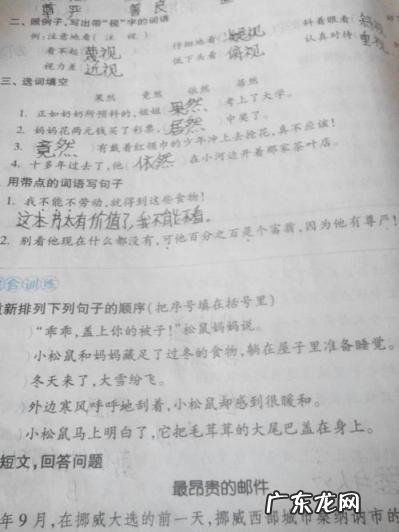 尊严 善良
二、照例子,写出带“视”字的词语
例:注意地看(注 视) 仔细地看(凝视 斜着眼看(斜视
看不起(蔑视 低下头看(俯视 认真对待(重视
视力差(近视
三、选词填空
果然 竟然 依然 居然
1. 正如奶奶所预料的,姐姐(果然)考上了大学。
2. 妈妈花两元钱买了彩票,(居然)中奖了。
3.(竟然)有戴着红领巾的少年冲上去抢花,真不应该!
4. 十多年过去了,他(依然)在小河边开着那家茶叶店。
用带点的词语写句子
1. 我不能不劳动,就得到这些食物!
这本书太有价值了,我不能不看。
2. 别看他现在什么都没有,可他百分之百是个富翁,因为他有尊严!
合训练
新排列下列句子的顺序(把序号填在括号里)
)“乖乖,盖上你的被子!”松鼠妈妈说。
)小松鼠和妈妈藏足了过冬的食物,躺在屋子里准备睡觉。
)冬天来了,大雪纷飞。
)外边寒风呼呼地刮着,小松鼠却感到很暖和。
)小松鼠马上明白了,它把毛茸茸的大尾巴盖在身上。
短文,回答问题
最昂贵的邮件
年9月,在挪威大选的前一天,挪威西部城市桑纳讷市的
广东龙网